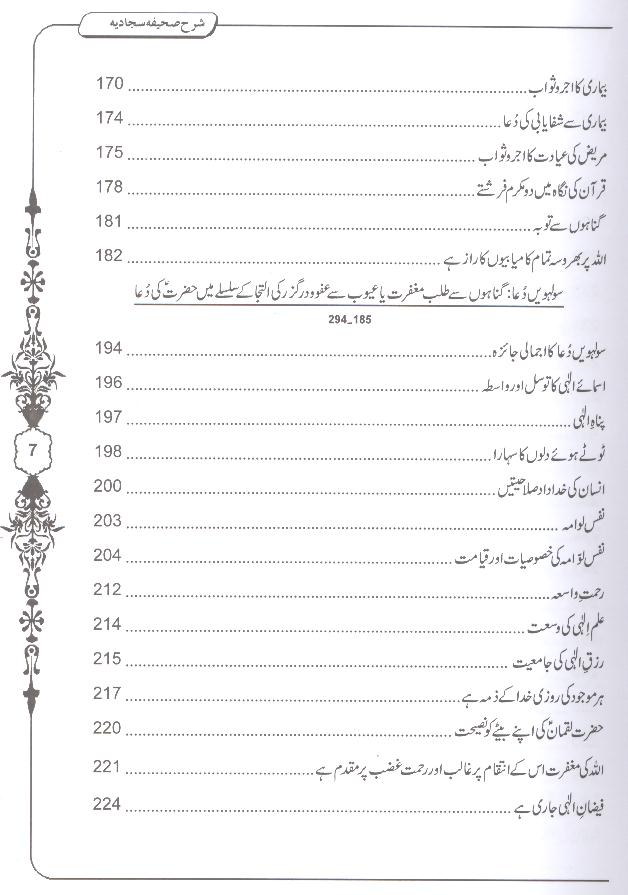 شرح صحیفہ سجادیہ
بیماری کا اجر و ثواب ........ 170
بیماری سے شفایابی کی دُعا ........ 174
مریض کی عیادت کا اجر و ثواب ........ 175
قرآن کی نگاہ میں دو مکرم فرشتے ........ 178
گناہوں سے توبہ ........ 181
اللہ پر بھروسہ تمام کامیابیوں کا راز ہے ........ 182
سولہویں دُعا: گناہوں سے طلب مغفرت یا عیوب سے عفو و درگزر کی التجا کے سلسلے میں حضرتؑ کی دُعا
294_185
سولہویں دُعا کا اجمالی جائزہ ........ 194
اسمائے الٰہی کا توسل اور واسطہ ........ 196
پناہِ الٰہی ........ 197
ٹوٹے ہوئے دلوں کا سہارا ........ 198
انسان کی خداداد صلاحیتیں ........ 200
نفس لوامہ ........ 203
نفس لوّامہ کی خصوصیات اور قیامت ........ 204
رحمتِ واسعہ ........ 212
علم الٰہی کی وسعت ........ 214
رزقِ الٰہی کی جامعیت ........ 215
ہر موجود کی روزی خدا کے ذمہ ہے ........ 217
حضرت لقمانؑ کی اپنے بیٹے کو نصیحت ........ 220
اللہ کی مغفرت اس کے انتقام پر غالب اور رحمت غضب پر مقدم ہے ........ 221
فیضانِ الٰہی جاری ہے ........ 224
7